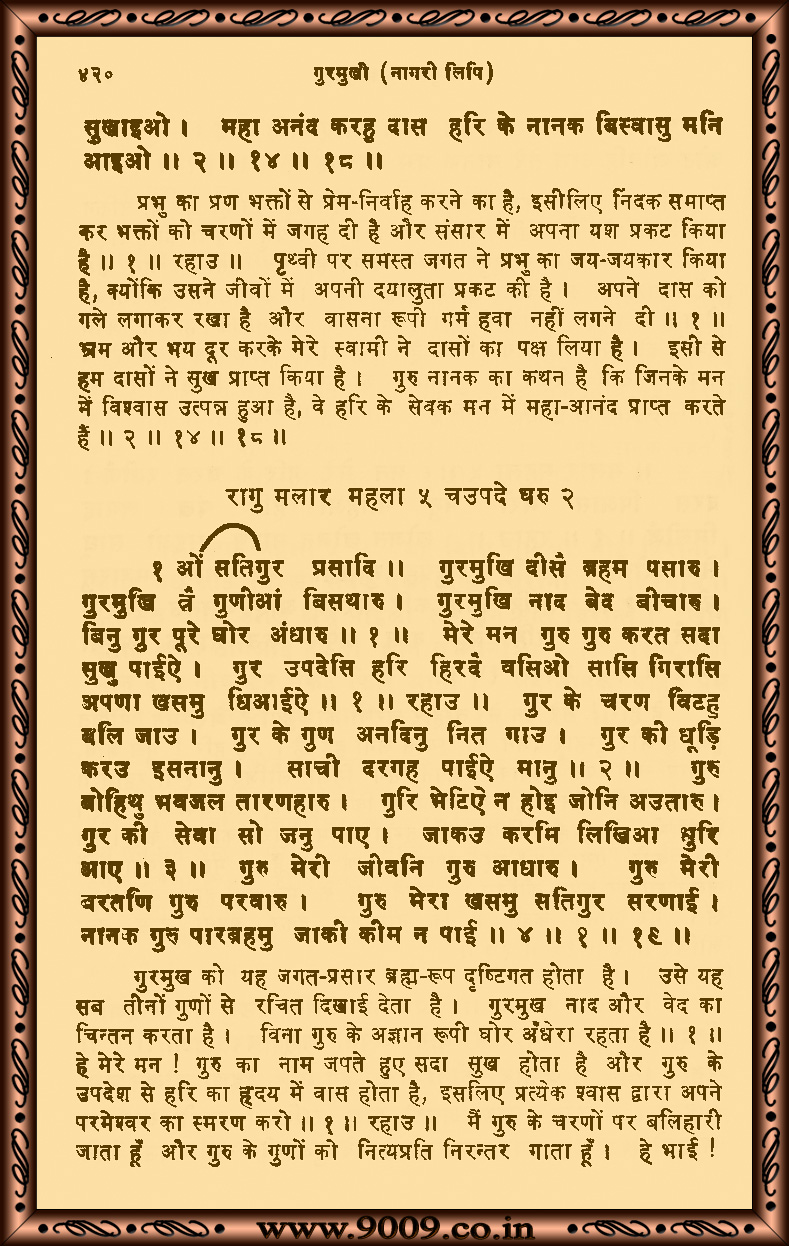 ४२० गुरमुखी (नागरी लिपि)
सुखाइओ । महा अनंद करहु दास हरि के नानक बिस्वासु मनि
आइओ ॥ २ ॥ १४ ॥ १८ ॥
प्रभु का प्रण भक्तों से प्रेम-निर्वाह करने का है, इसीलिए निंदक समाप्त
कर भक्तों को चरणों में जगह दी है और संसार में अपना यश प्रकट किया
है ॥ १ ॥ रहाउ ॥ पृथ्वी पर समस्त जगत ने प्रभु का जय-जयकार किया
है, क्योंकि उसने जीवों में अपनी दयालुता प्रकट की है । अपने दास को
गले लगाकर रखा है और वासना रूपी गर्म हवा नहीं लगने दी ॥ १ ॥
भ्रम और भय दूर करके मेरे स्वामी ने दासों का पक्ष लिया है । इसी से
हम दासों ने सुख प्राप्त किया है । गुरु नानक का कथन है कि जिनके मन
में विश्वास उत्पन्न हुआ है, वे हरि के सेवक मन में महा-आनंद प्राप्त करते
हैं ॥ २ ॥ १४ ॥ १८ ॥
रागु मलार महला ५ चउपदे घरु २
१ ओं सतिगुर प्रसादि ॥ गुरमुखि दीसै ब्रहम पसारु ।
गुरमुखि त्रै गुणीआं बिसथारु । गुरमुखि नाद बेद बीचारु ।
बिनु गुर पूरे घोर अंधारु ॥ १ ॥ मेरे मन गुरु गुरु करत सदा
सुखु पाईऐ । गुर उपदेसि हरि हिरदै वसिओ सासि गिरासि
अपणा खसमु धिआईऐ ॥ १ ॥ रहाउ ॥ गुर के चरण विटहु
बलि जाउ । गुर के गुण अनदिनु नित गाउ । गुर की धूड़ि
करउ इसनानु । साची दरगह पाईऐ मानु ॥ २ ॥ गुरु
बोहिथु भवजल तारणहारु । गुरि भेटिऐ न होइ जोनि अउतारु ।
गुर की सेवा सो जनु पाए । जाकउ करमि लिखिआ धुरि
आए ॥ ३ ॥ गुरु मेरी जीवनि गुरु आधारु । गुरु मेरी
वरतणि गुरु परवारु । गुरु मेरा खसमु सतिगुर सरणाई ।
नानक गुरु पारब्रहमु जाकी कीम न पाई ॥ ४ ॥ १ ॥ १९ ॥
गुरमुख को यह जगत-प्रसार ब्रह्म-रूप दृष्टिगत होता है । उसे यह
सब तीनों गुणों से रचित दिखाई देता है । गुरमुख नाद और वेद का
चिन्तन करता है । विना गुरु के अज्ञान रूपी घोर अँधेरा रहता है ॥ १ ॥
हे मेरे मन ! गुरु का नाम जपते हुए सदा सुख होता है और गुरु के
उपदेश से हरि का हृदय में वास होता है, इसलिए प्रत्येक श्वास द्वारा अपने
परमेश्वर का स्मरण करो ॥ १ ॥ रहाउ ॥ मैं गुरु के चरणों पर बलिहारी
जाता हूँ और गुरु के गुणों को नित्यप्रति निरन्तर गाता हूँ । हे भाई !
www.9009.co.in